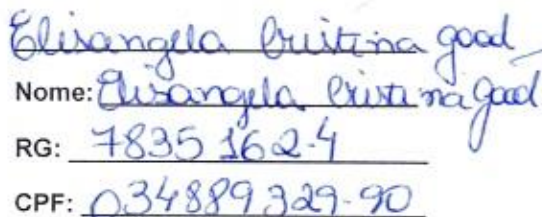 Elisangela Cristina Goad
Nome: Elisangela Cristina Goad
RG: 7835162-4
CPF: 034889329-90